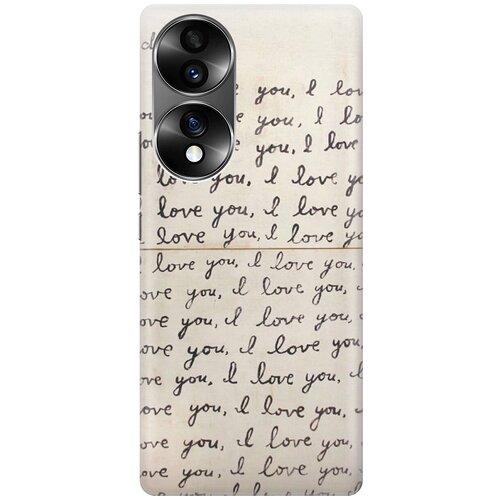 you, I lov
you, I lo
you, I love
love you, I love yo
love you, I love yo
love you, I love yo
I love you, I love you,
ove you, I love you,
ove you, I love you,
ove you, I love you,
ove you, I love you, I
ove you, I love you,
ove you, I love you,
ove you, I love you,